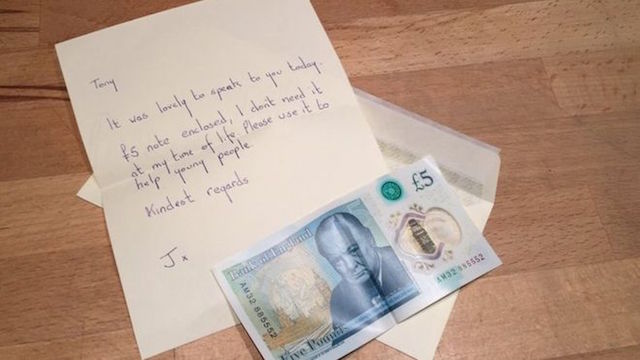 Tony
It was lovely to speak to you today.
£5 note enclosed, I don't need it
at my time of life. Please use it to
help young people.
Kindest regards
J x
£5
Bank of England
AM32 885552
AM32 885552
Five Pound